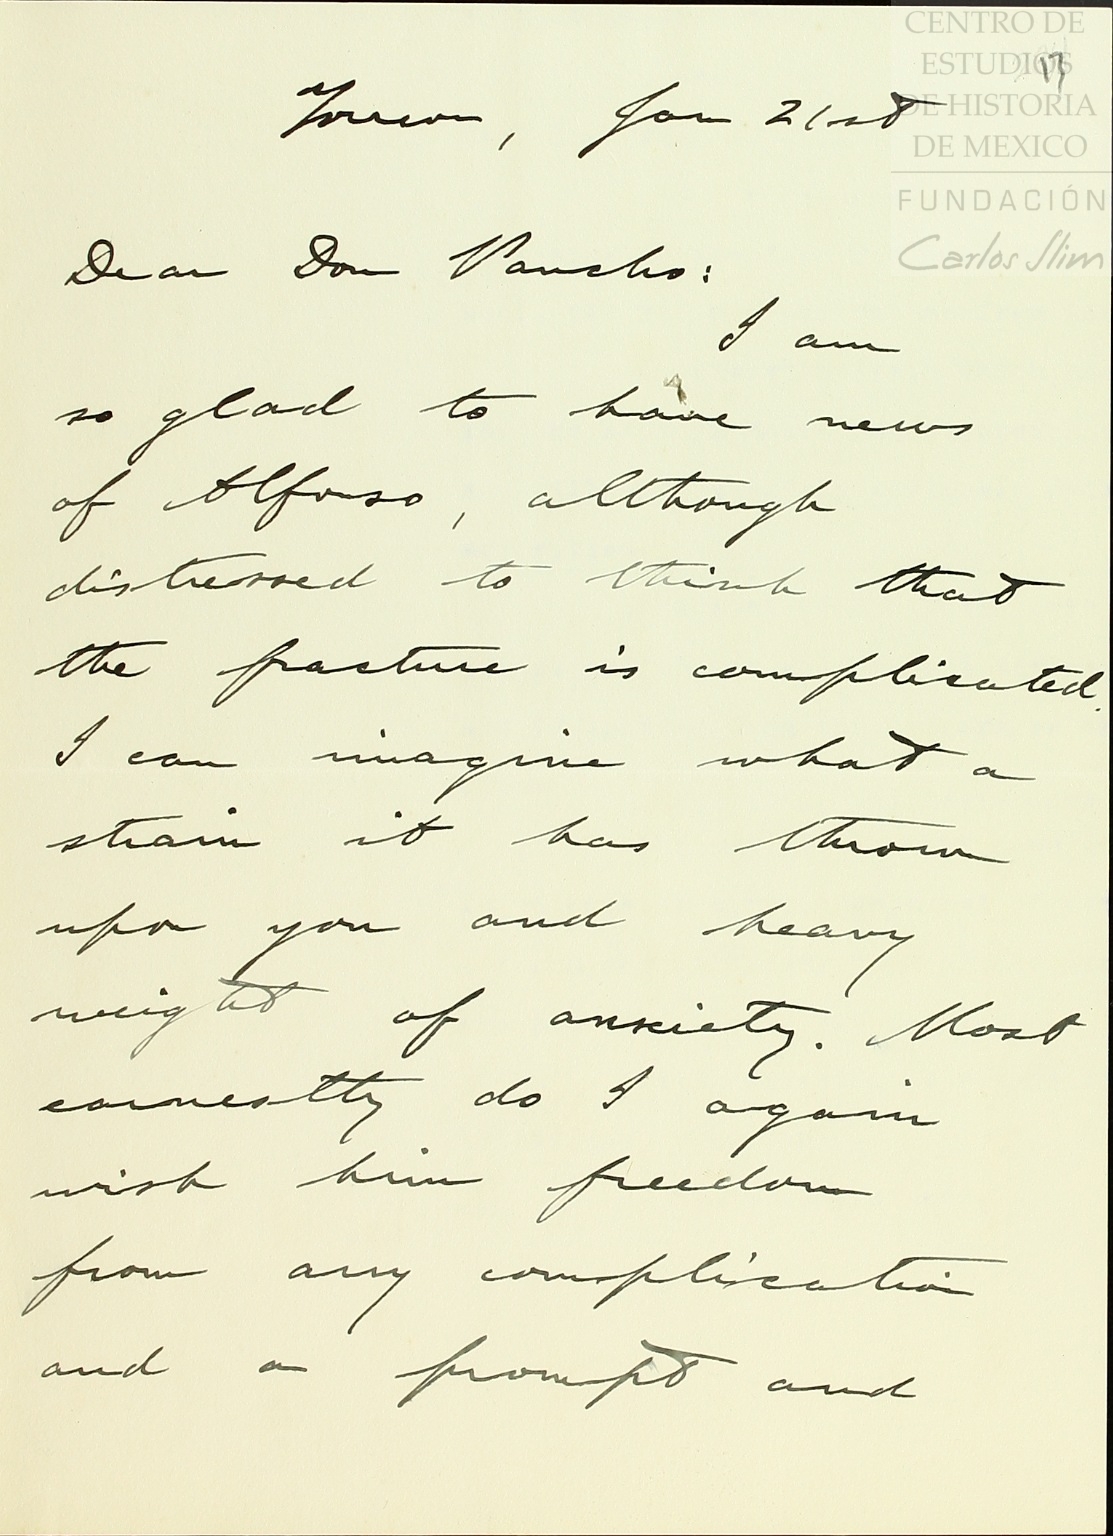 CENTRO DE
ESTUDIOS
DE HISTORIA
DE MEXICO
FUNDACIÓN
Carlos Slim
17
Torreon, Jan 21st
Dear Don Pancho:
I am
so glad to have news
of Alfonso, although
distressed to think that
the fracture is complicated.
I can imagine what a
strain it has thrown
upon you and heavy
weight of anxiety. Most
earnestly do I again
wish him freedom
from any complication
and a prompt and